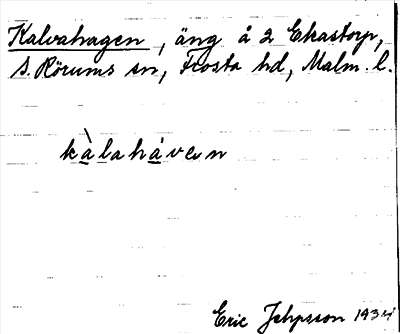 Kalvahagen, äng å 2 Ekastorp,
S. Rörums sn, Frosta hd, Malm. l.
kàlaháven
Eric Jehpsson 1934